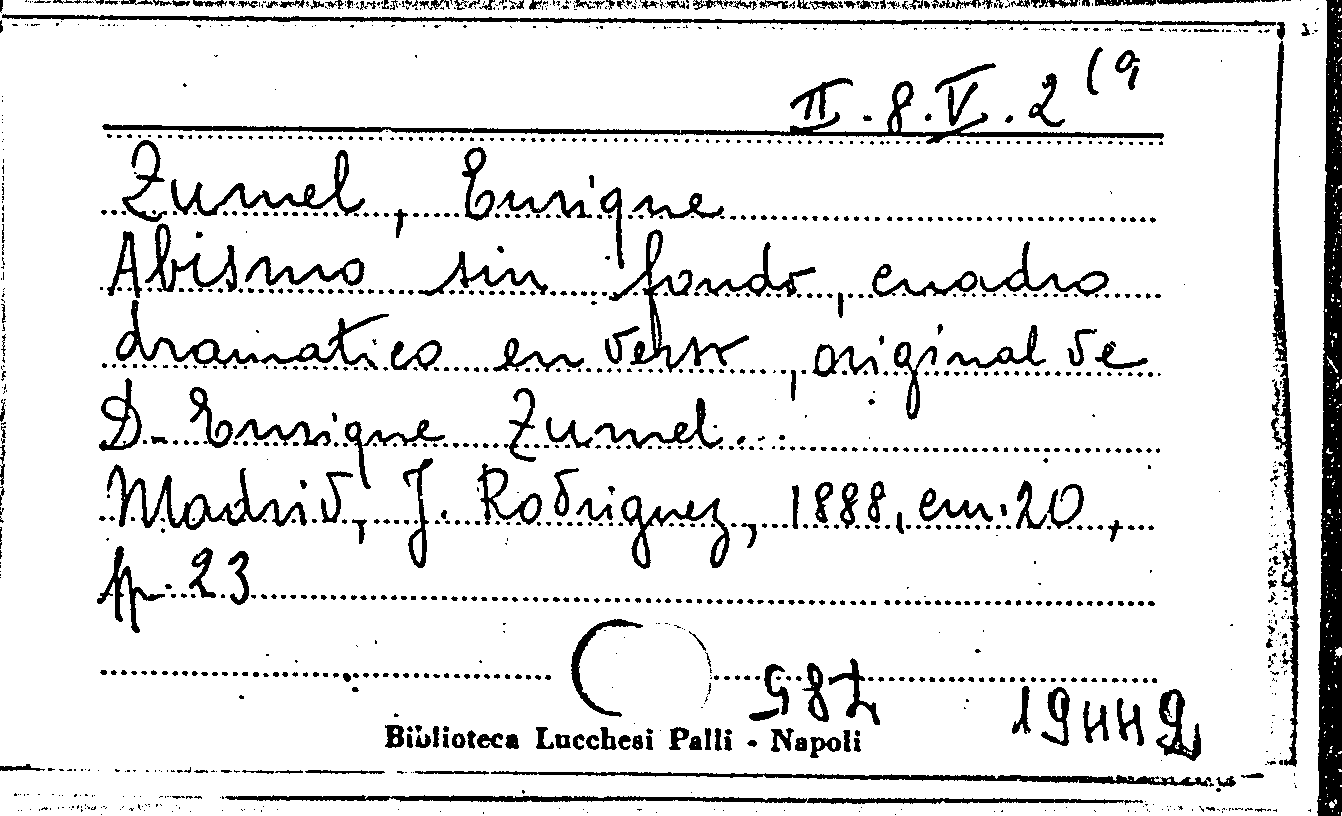 II.8.V.2 (9
Zumel, Enrique
Abismo sin fondo, cuadro
dramatico en verso, original de
D. Enrique Zumel...
Madrid, J. Rodriguez, 1888, cm. 20,
p. 23
Biblioteca Lucchesi Palli - Napoli